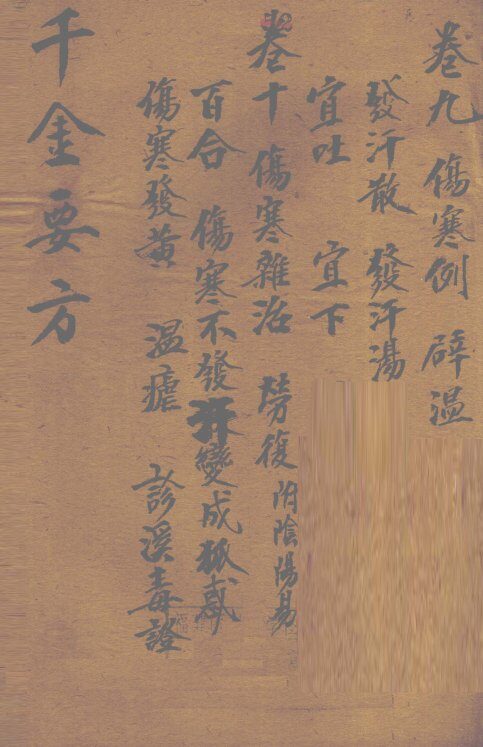 卷九 傷寒例 辟溫
發汗散 發汗湯
宜吐 宜下
卷十 傷寒雜治 勞復附陰陽易
百合 傷寒不發汗變成狐惑
傷寒發黃 溫瘧 診溪毒證
千金要方